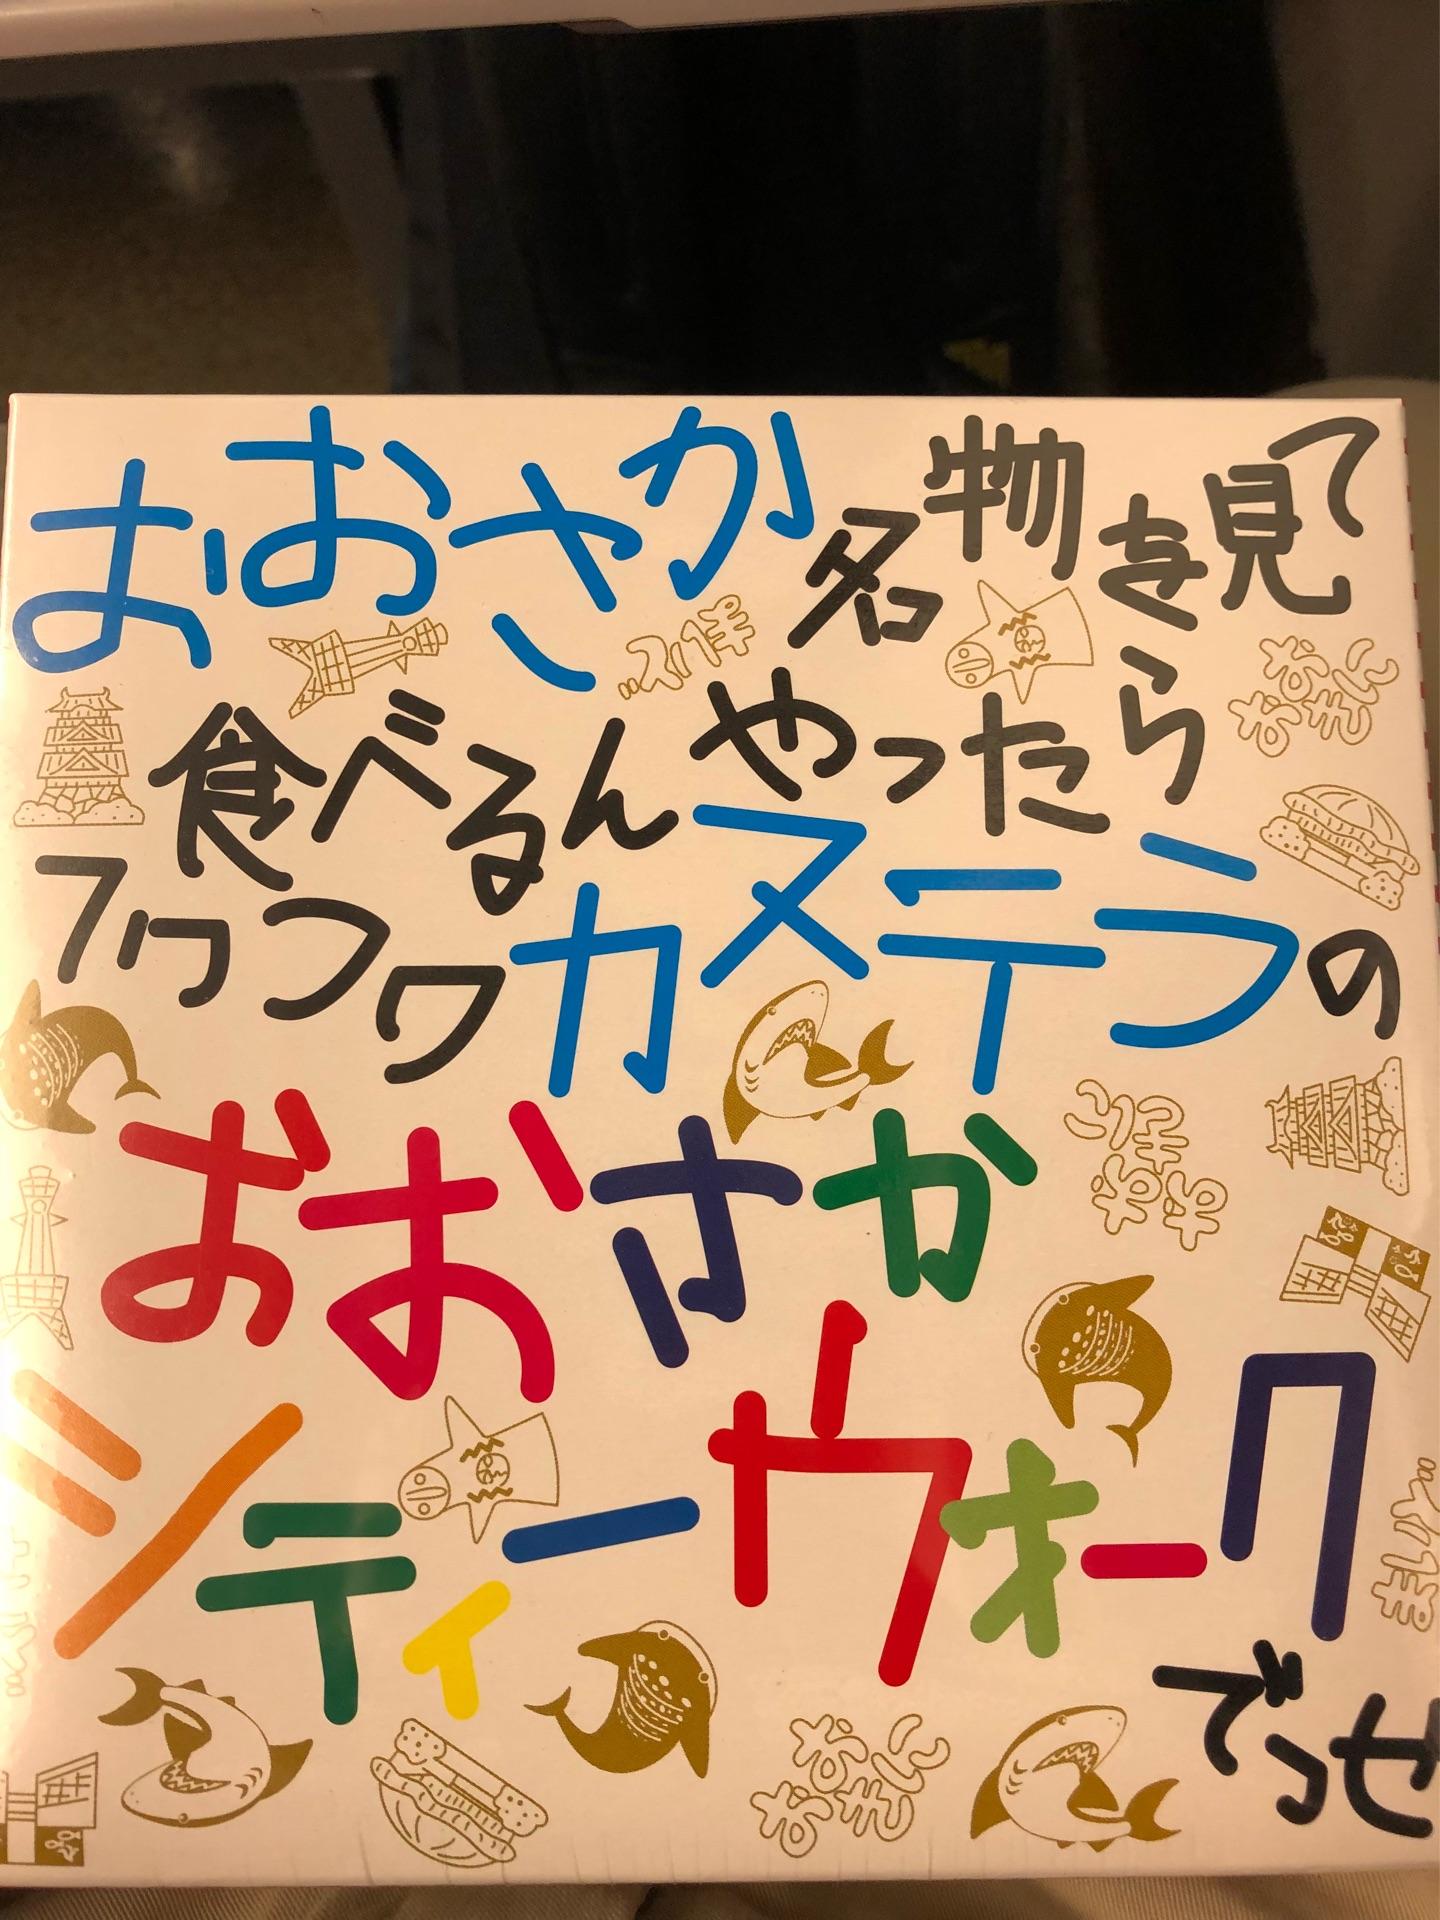 おおさか名物を見て
食べるんやったら
フワフワカステラの
おおさか
シティーウォーク
でっせ
おおきに
おおきに
おおきに